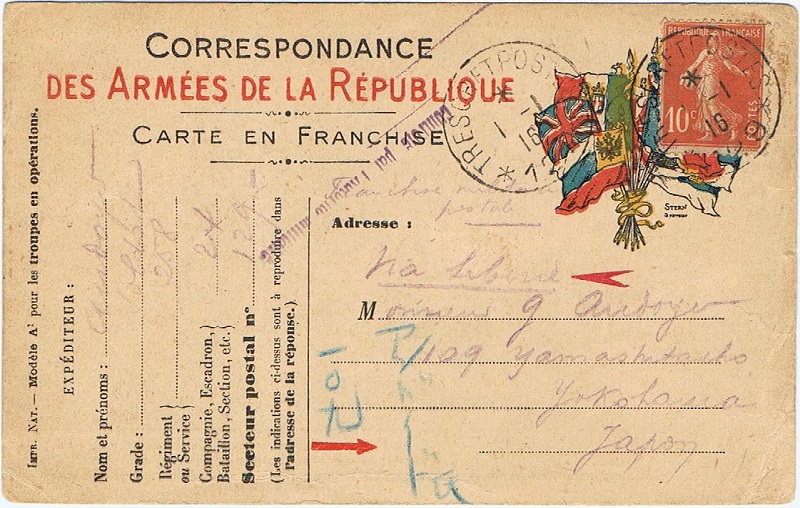 CORRESPONDANCE
DES ARMÉES DE LA RÉPUBLIQUE
CARTE EN FRANCHISE
RÉPUBLIQUE FRANÇAISE
10c
POSTES
TRESOR ET POSTES
1 - 1
16
TRESOR ET POSTES
1 - 1
16
STERN
par l'Autorité militaire
Franchise
postale
Adresse :
Via Siberie
Monsieur G Audoyer
109 Yamashitacho
Yokohama
Japon
IMPR. NAT. — Modèle A¹ pour les troupes en opérations.
EXPÉDITEUR :
Nom et prénoms : Audoyer
Grade : soldat
Régiment
ou Service } 258
Compagnie, Escadron,
Bataillon, Section, etc. } 24
Secteur postal n° 129
(Les indications ci-dessus sont à reproduire dans
l'adresse de la réponse.)